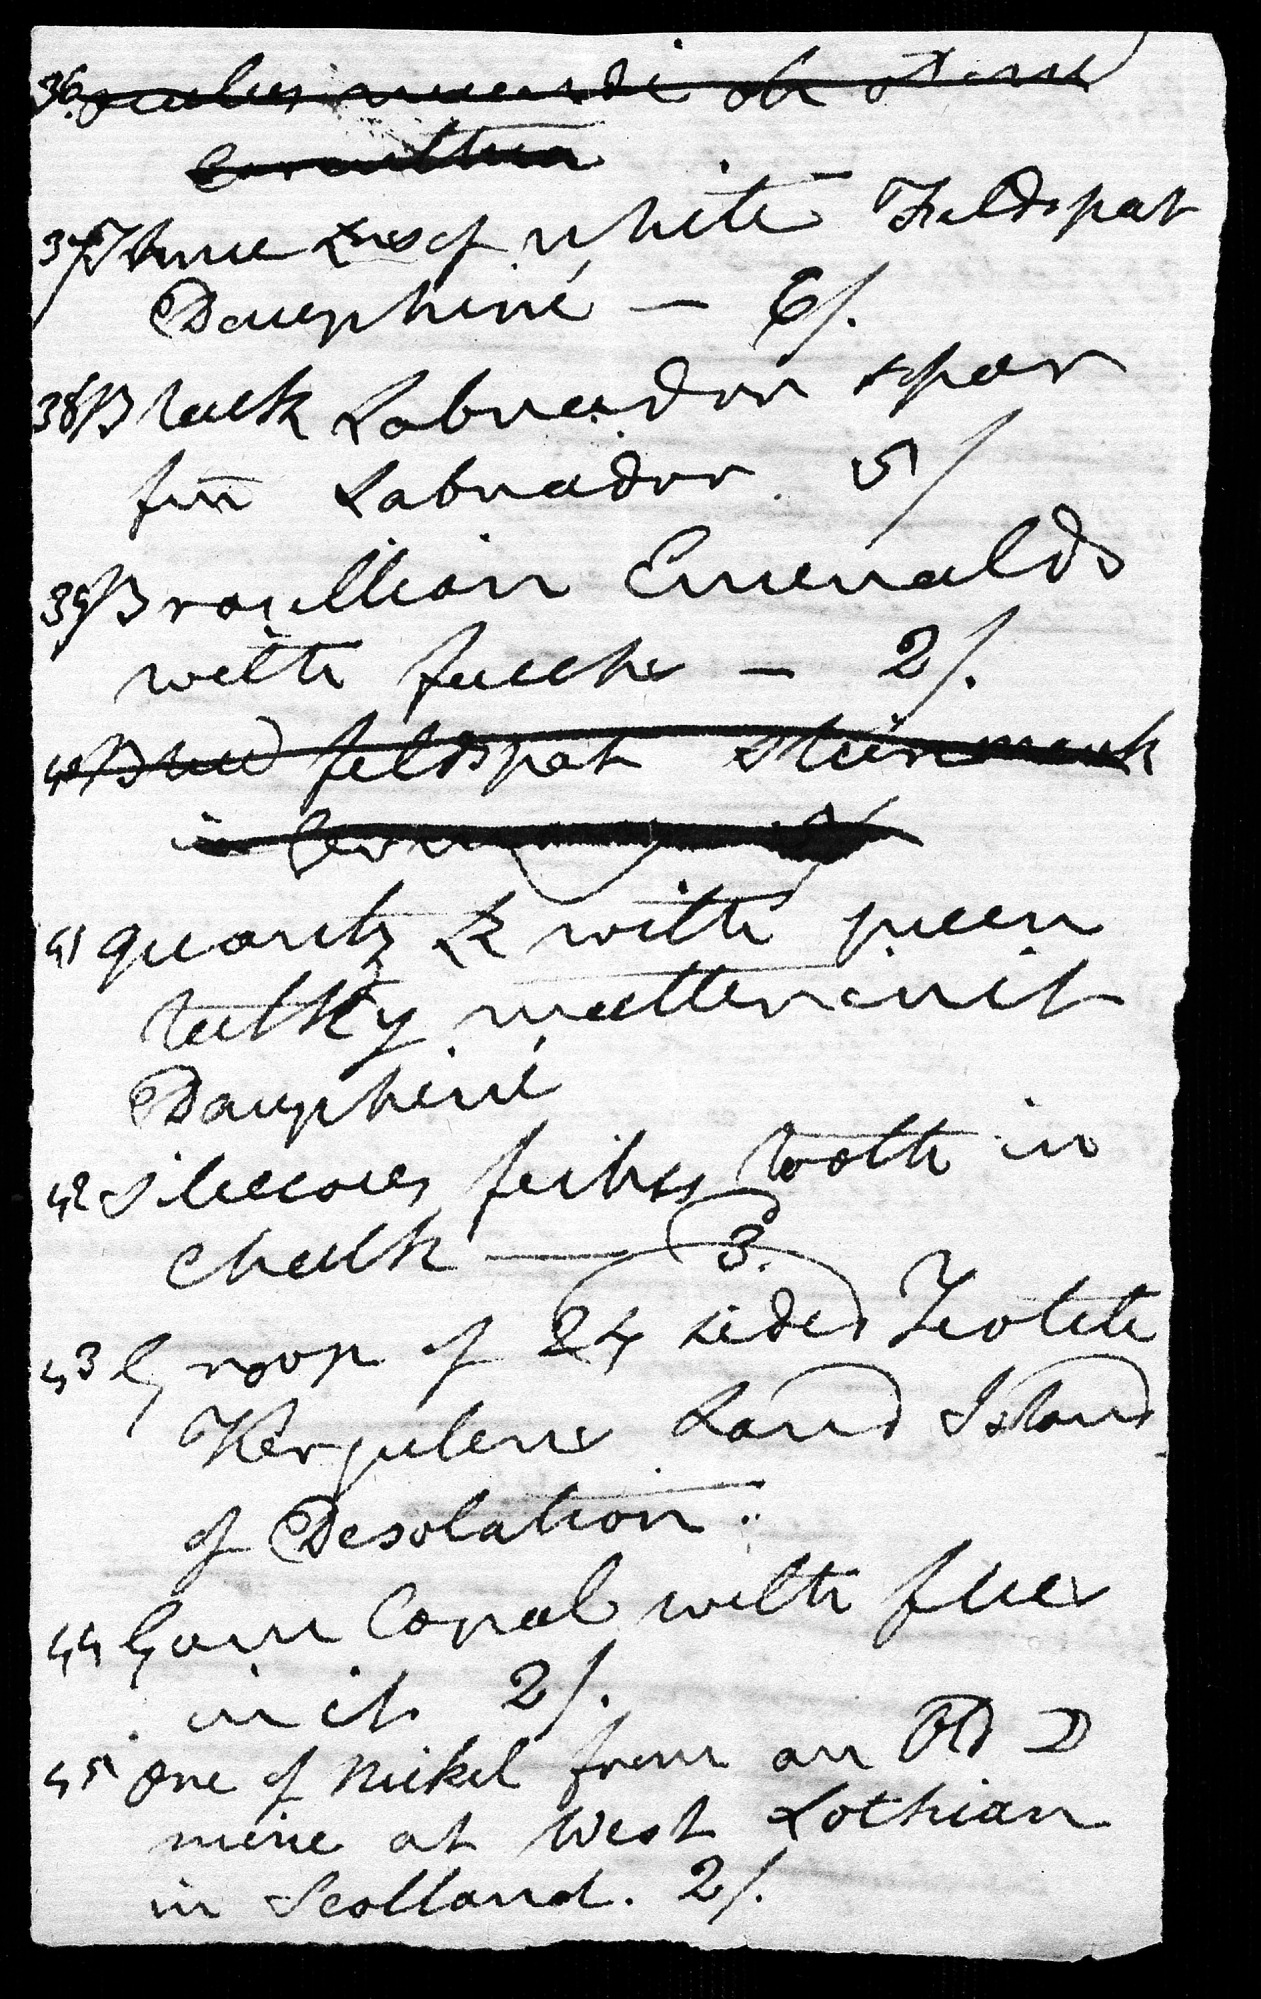 36. oculus mundi
37 Three of white Feldspat
Dauphiné — 6/.
38 Black Labrador spar
fm̄ Labrador. 5/
39 Brazillian Emeralds
with — 2/.
40 Blue feldspat
in
41 quartz with green
talky matter in it
Dauphiné
42 fishes tooth in
chalk — 3.
43 Groop of 24 sided Zeolite
Kergulens Land Island
of Desolation.
44 Gum Copal with flies
in it 2/.
45 One of Nickel from an Old
mine at West Lothian
in Scotland. 2/.